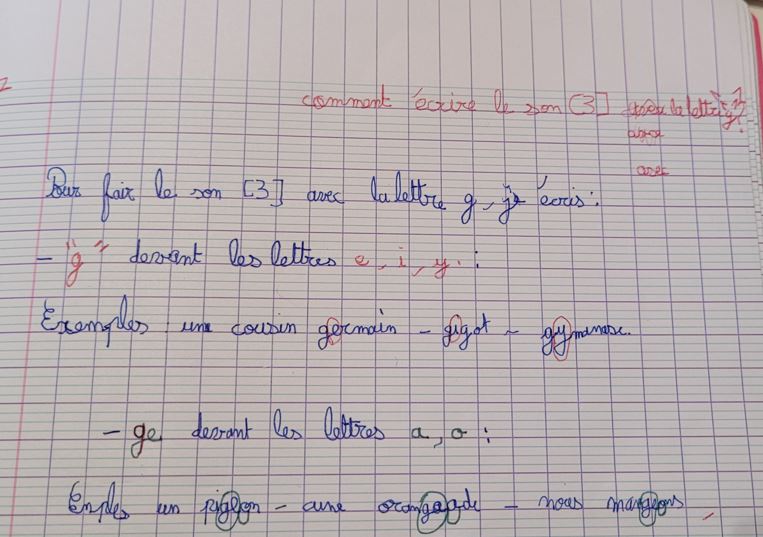 comment écrire le son [3] avec la lettre g?
avec
Pour fair le son [3] avec la lettre g, je écris:
- "g" devant les lettres e, i, y. :
Exemples : une cousin germain - gigot - gymanase.
- ge devant les lettres a, o :
Emples un pigeon - une orangeade - nous mangeons